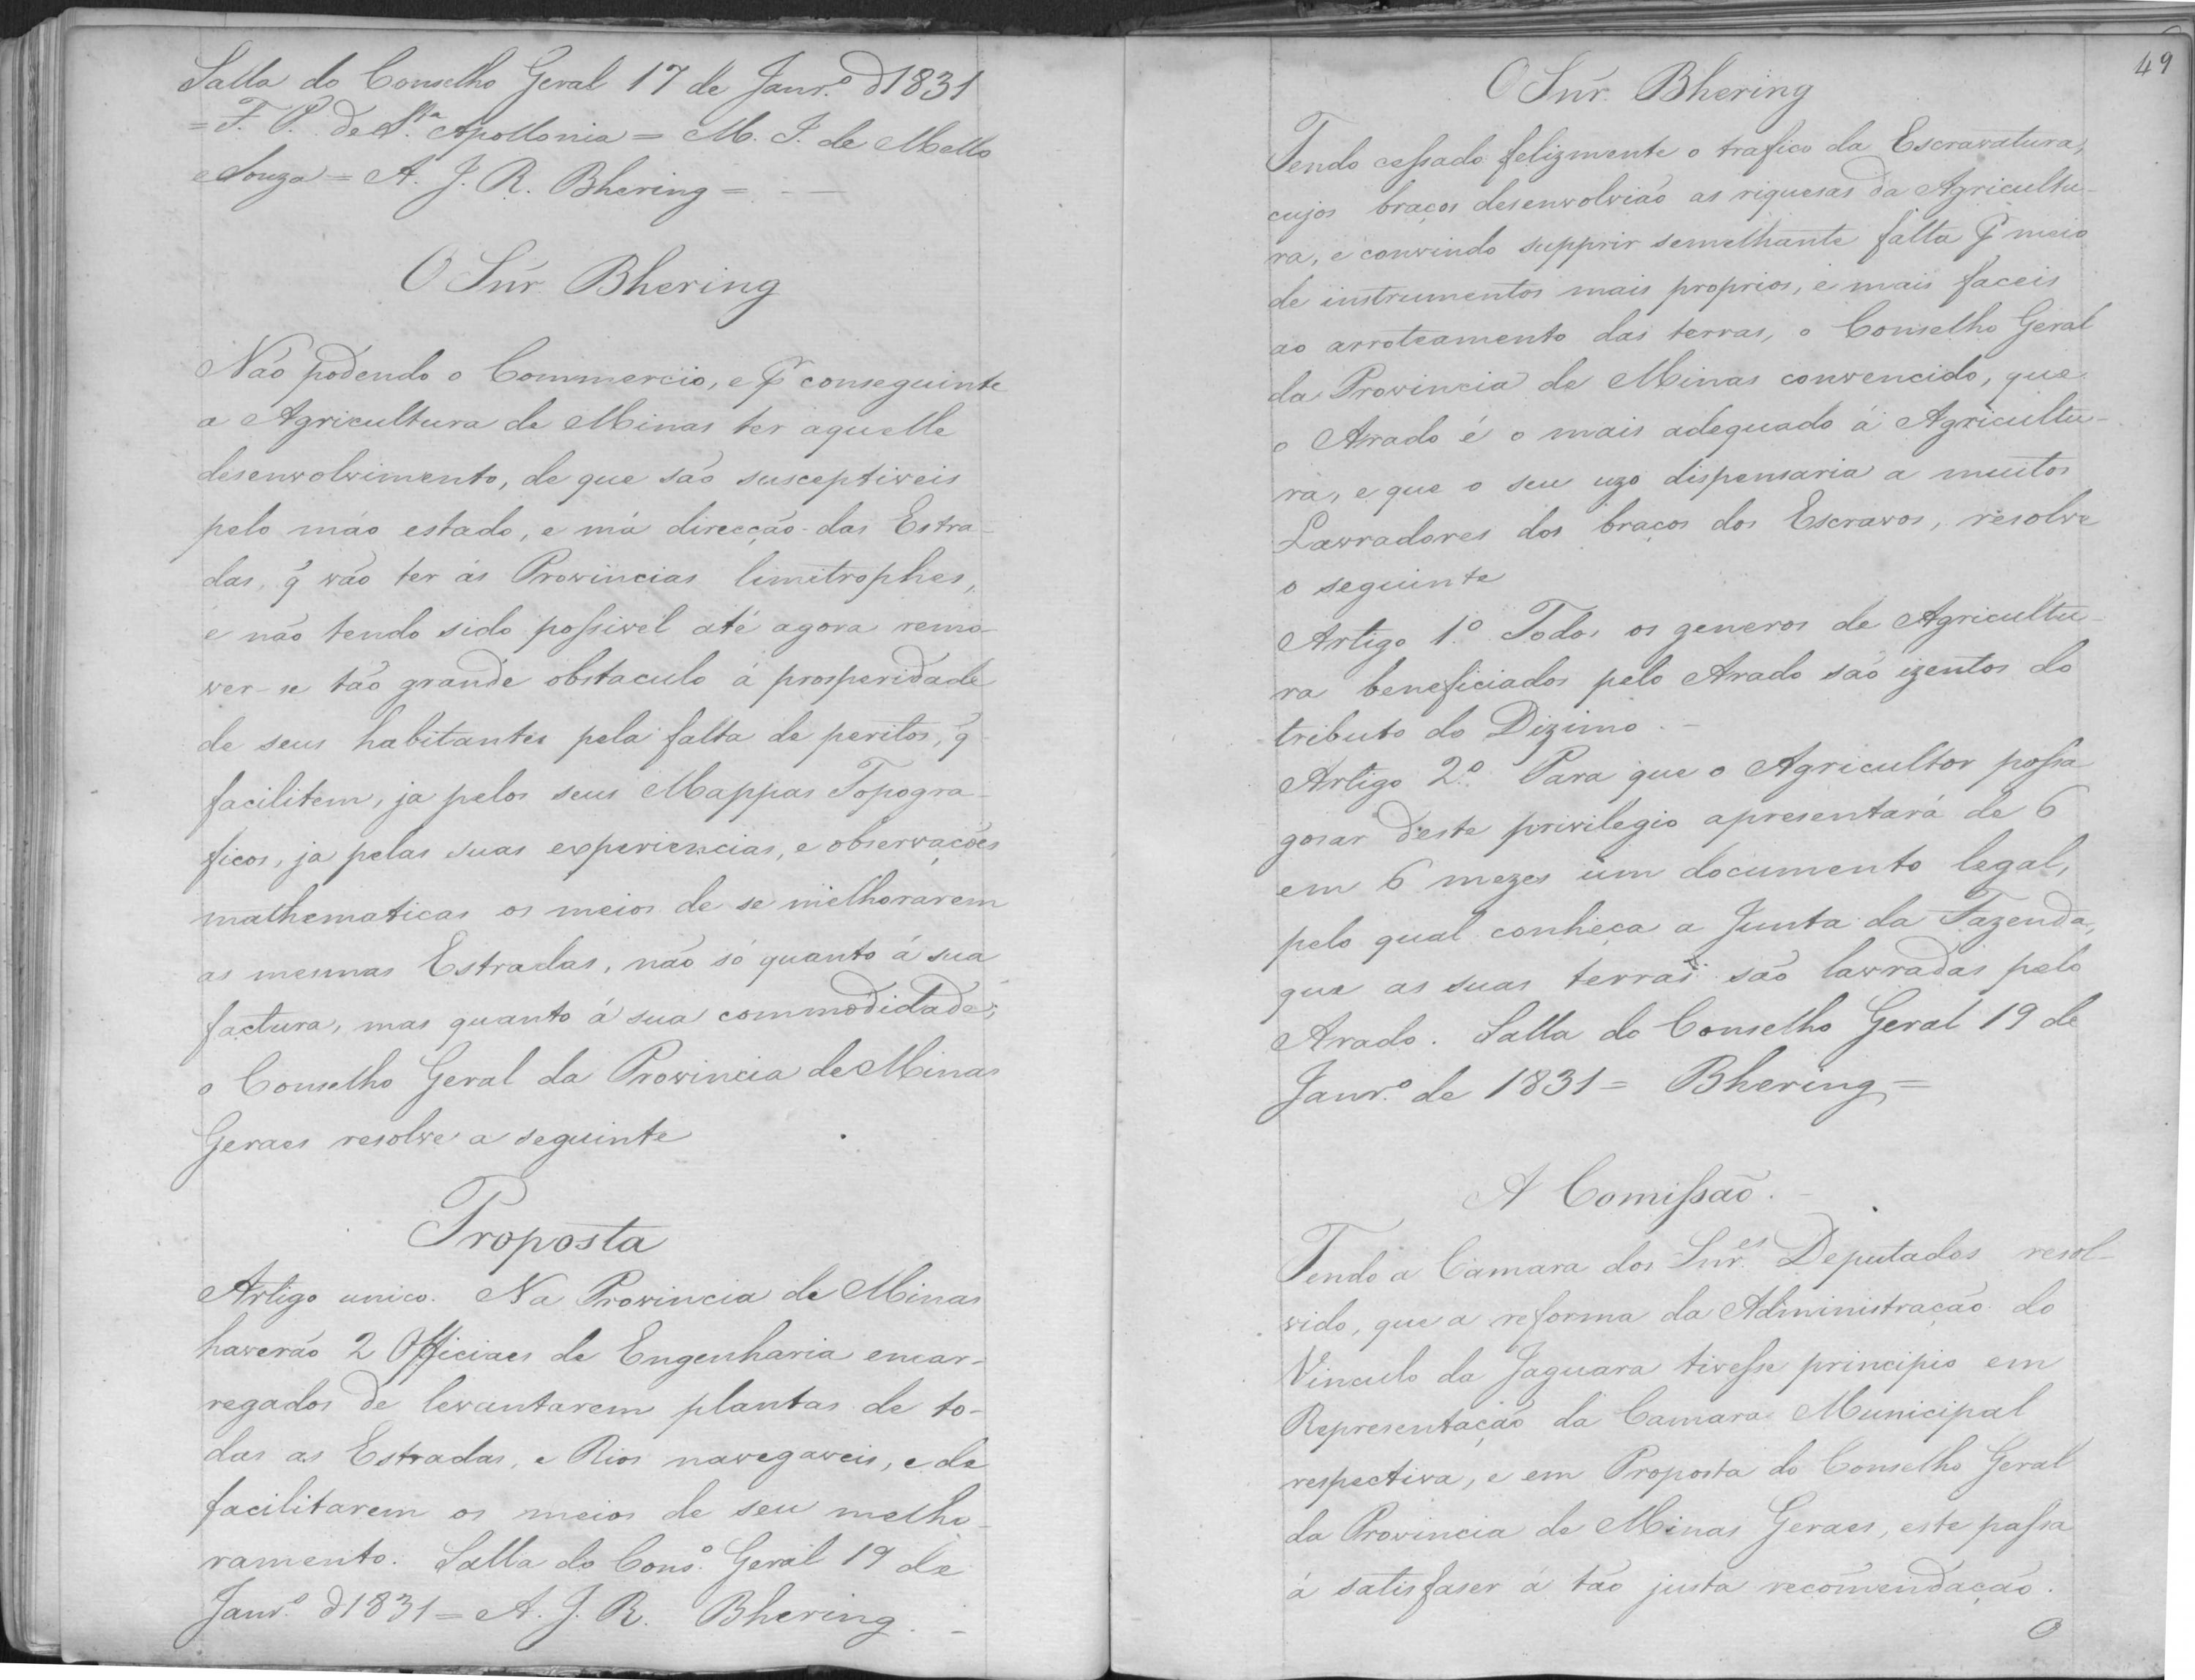 Salla do Conselho Geral 17 de Janr.º d 1831
= F. P. de S.ta Apollonia = M. I. de Mello
e Souza = A. J. R. Bhering = —
O Snr. Bhering
Não podendo o Commercio, e pr conseguinte
a Agricultura de Minas ter aquelle
desenvolvimento, de que são susceptiveis
pelo máo estado, e má direcção das Estra-
das, q̃ vão ter ás Provincias limitrophes,
e não tendo sido poſsivel até agora remo-
ver-se tão grande obstaculo á prosperidade
de seus habitantes pela falta de peritos, q̃
facilitem, ja pelos seus Mappas Topogra-
ficos, ja pelas suas experiencias, e observações
mathematicas os meios de se melhorarem
as mesmas Estradas, não só quanto á sua
factura, mas quanto á sua commodidade;
o Conselho Geral da Provincia de Minas
Geraes resolve a seguinte
Proposta
Artigo unico. Na Provincia de Minas
haverão 2 Officiaes de Engenharia encar-
regados de levantarem plantas de to-
das as Estradas, e Rios navegaveis, e de
facilitarem os meios de seu melho-
ramento. Salla do Cons.º Geral 19 de
Janr.º d 1831 = A. J. R. Bhering. -
49
O Snr. Bhering
Tendo ceſsado felizmente o trafico da Escravatura,
cujos braços desenvolvião as riquesas da Agricultu-
ra, e convindo supprir semelhante falta pr meio
de instrumentos mais proprios, e mais faceis
ao arroteamento das terras, o Conselho Geral
da Provincia de Minas convencido, que
o Arado é o mais adequado á Agricultu-
ra, e que o seu uzo dispensaria a muitos
Lavradores dos braços dos Escravos, resolve
o seguinte
Artigo 1.º Todos os generos de Agricultu-
ra beneficiados pelo Arado são izentos do
tributo do Dizimo. -
Artigo 2.º Para que o Agricultor poſsa
gosar d'este privilegio apresentará de 6
em 6 mezes um documento legal,
pelo qual conheça a Junta da Fazenda,
que as suas terras são lavradas pelo
Arado. Salla do Conselho Geral 19 de
Janr.º de 1831 = Bhering =
A Comiſsão. -
Tendo a Camara dos Snr.es Deputados resol-
vido, que a reforma da Administração do
Vinculo da Jaguara tiveſse principio em
Representação da Camara Municipal
respectiva, e em Proposta do Conselho Geral
da Provincia de Minas Geraes, este paſsa
á satisfaser á tão justa recõmendação.
O